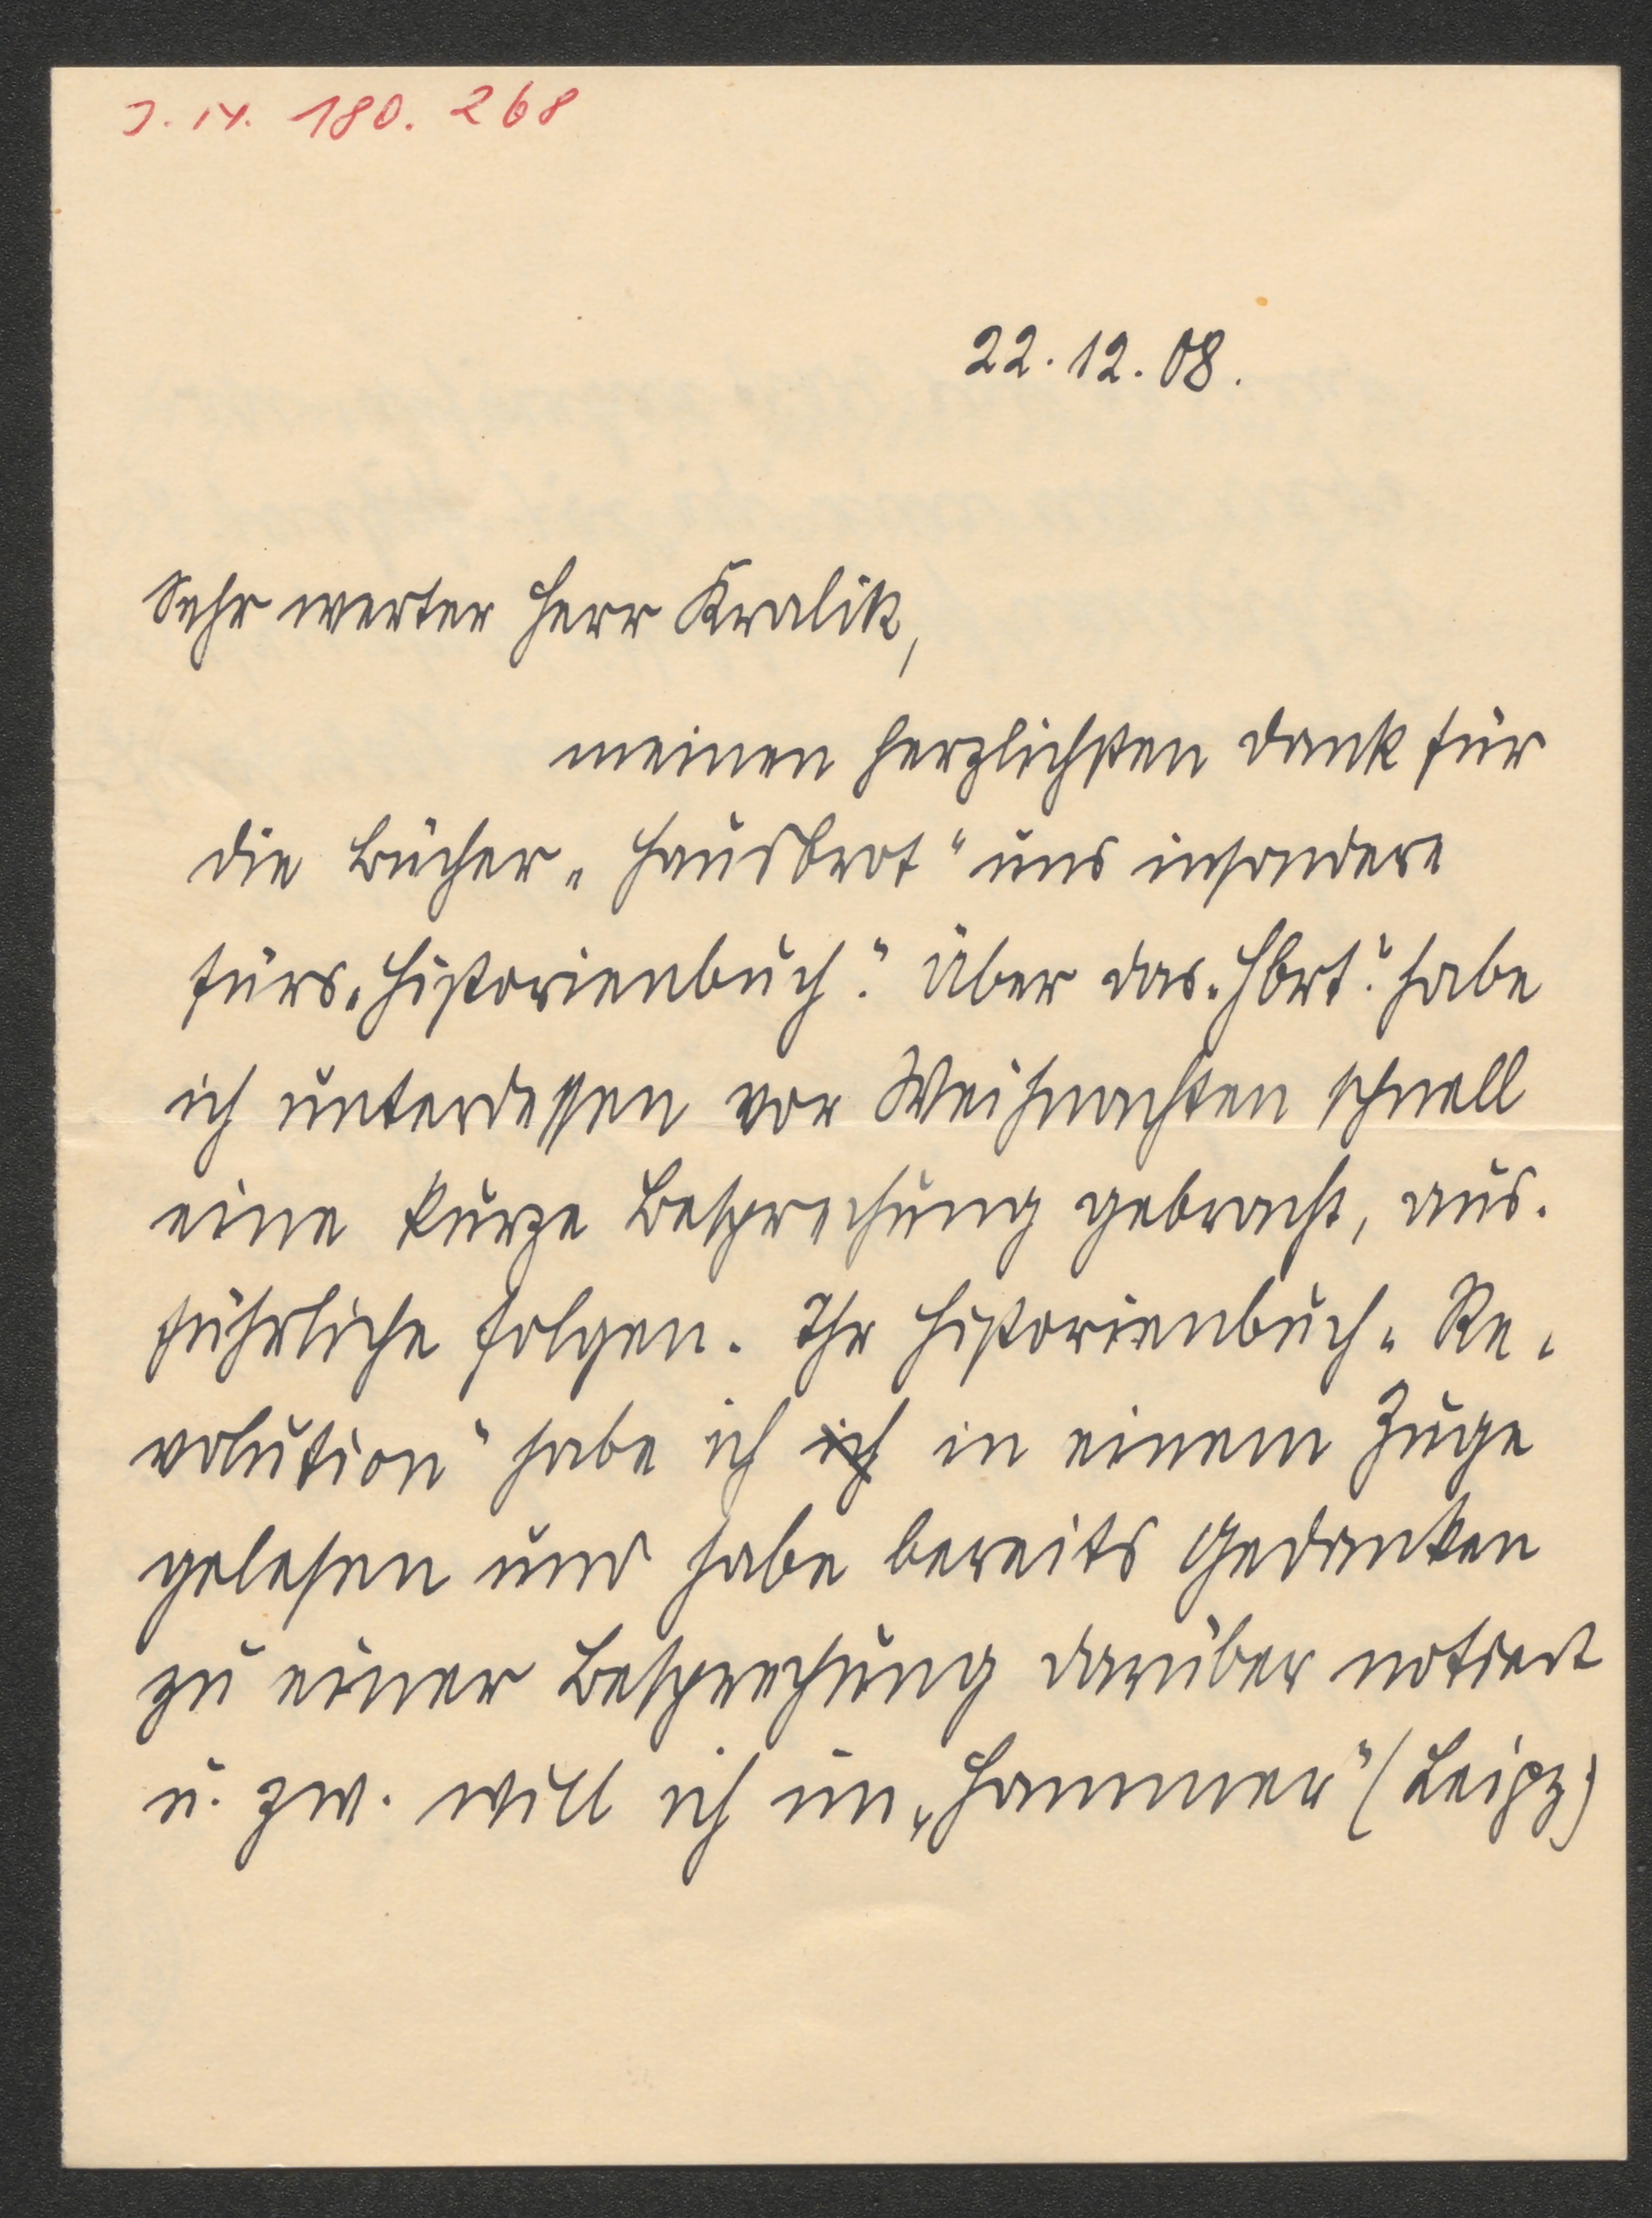 J. N. 180. 268
22. 12. 08.
Sehr werter Herr Kralik,
meinen herzlichsten Dank für
die Bücher „Hausbrot“ und insondere
fürs „Historienbuch“. Über das „Hbrt.“ habe
ich unterdessen vor Weihnachten schnell
eine kurze Besprechung gebracht, aus-
führliche folgen. Ihr Historienbuch „Re-
volution“ habe ich ich in einem Zuge
gelesen und habe bereits Gedanken
zu einer Besprechung darüber notiert
u. zw. will ich im „Hammer“ (Leipz.)